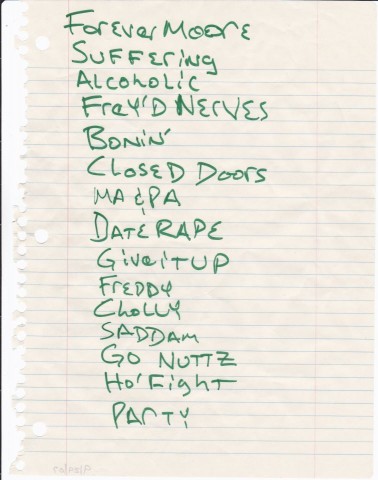 ForeverMoore
SUFFERiNg
Alcoholic
FrAY'D NERVES
BONiN'
CLOSED DOORS
MA & PA
DATE RAPE
GiveiTUP
FREDDY
CHOLLY
SADDAM
GO NUTTZ
HO' Fight
PARTY